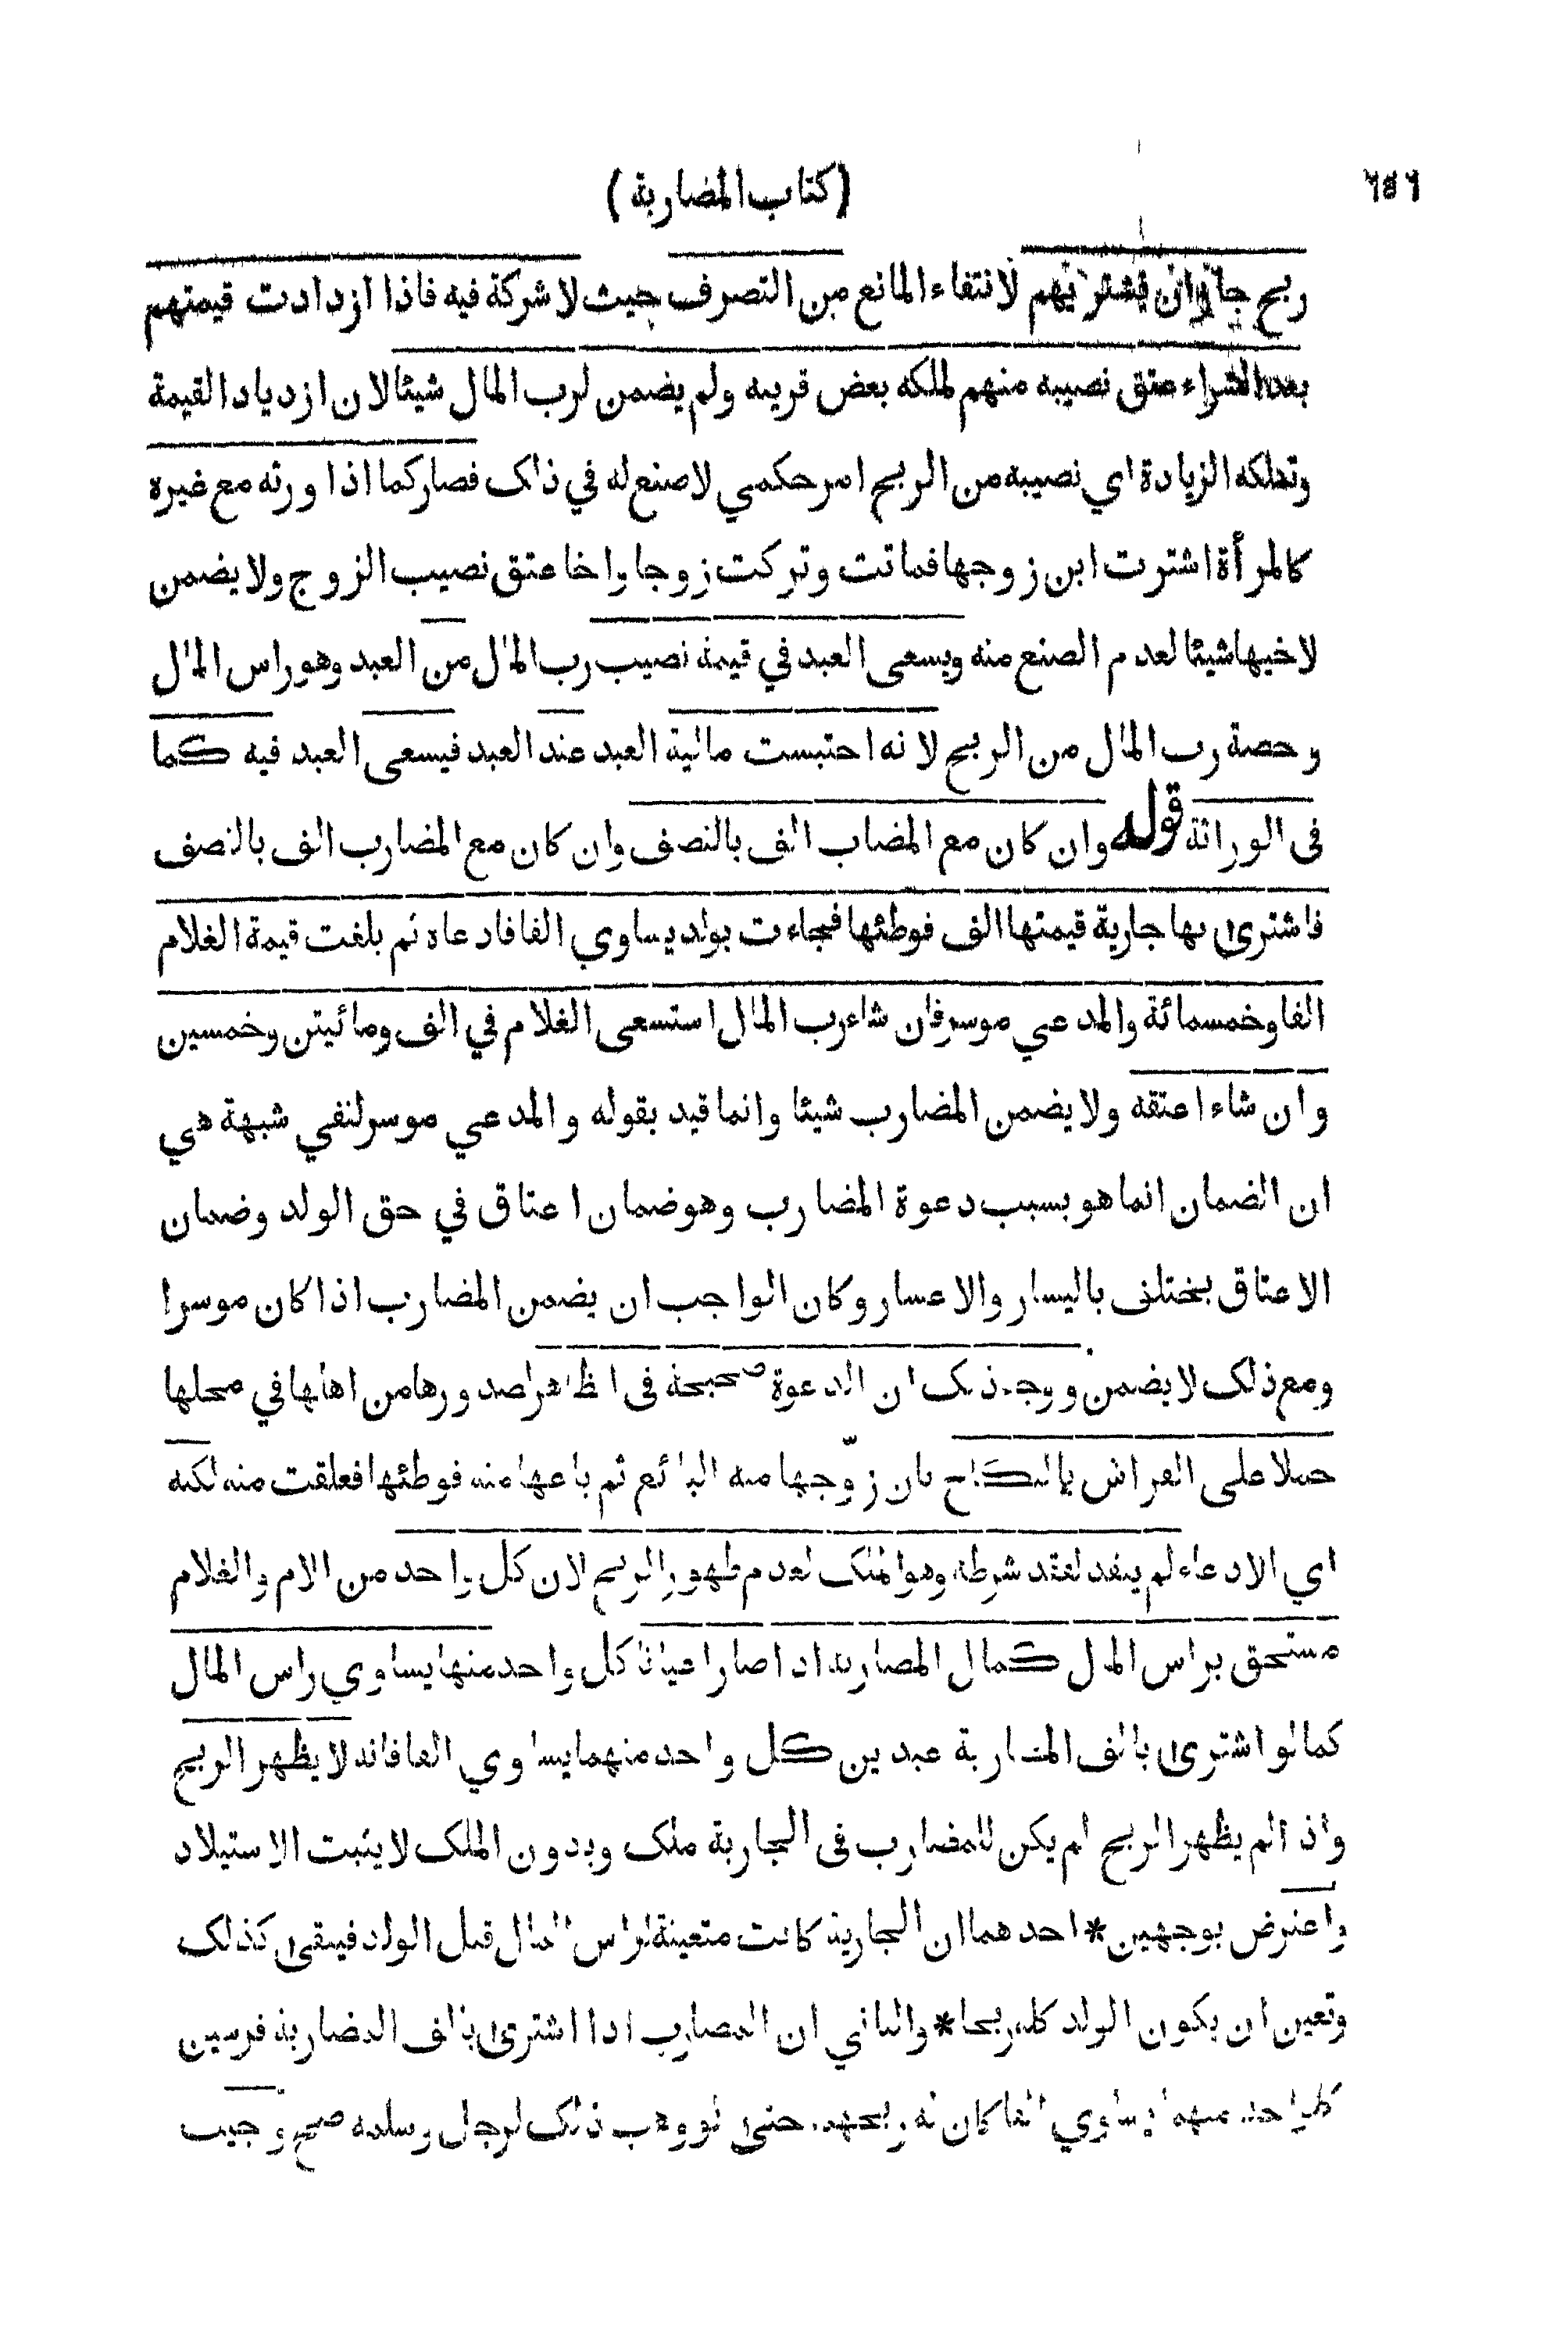 (كتاب المضاربة)
ربح جاز ان يشتريهم لانتفاء المانع من التصرف حيث لا شركة فيه فاذا ازدادت قيمتهم
بعد الشراء عتق نصيبه منهم لملكه بعض قريبه ولم يضمن لرب المال شيئا لان ازدياد القيمة
وتملكه الزيادة اي نصيبه من الربح امر حكمي لا صنع له في ذلك فصار كما اذا ورثه مع غيره
كالمرأة اشترت ابن زوجها فماتت وتركت زوجا واخا عتق نصيب الزوج ولا يضمن
لاخيها شيئا لعدم الصنع منه ويسعى العبد في قيمة نصيب رب المال من العبد وهو راس المال
وحصة رب المال من الربح لانه احتبست مالية العبد عند العبد فيسعى العبد فيه كما
فى الوراثة قوله وان كان مع المضاب الف بالنصف وان كان مع المضارب الف بالنصف
فاشترى بها جارية قيمتها الف فوطئها فجاءت بولد يساوي الفا فادعاه ثم بلغت قيمة الغلام
الفا وخمسمائة والمدعي موسر فان شاء رب المال استسعى الغلام في الف ومائيتن وخمسين
وان شاء اعتقه ولا يضمن المضارب شيئا وانما قيد بقوله والمدعي موسر لنفي شبهة هي
ان الضمان انما هو بسبب دعوة المضارب وهو ضمان اعتاق في حق الولد وضمان
الاعتاق يختلف باليسار والاعسار وكان الواجب ان يضمن المضارب اذا كان موسرا
ومع ذلك لا يضمن ووجه ذلك ان الدعوة صحيحة فى الظاهر لصدورها من اهلها في محلها
حملا على الفراش بالنكاح بان زوّجها منه البائع ثم باعها منه فوطئها فعلقت منه لكنه
اي الادعاء لم ينفذ لفقد شرطه وهو الملك لعدم ظهور الربح لان كل واحد من الام والغلام
مستحق براس المال كمال المضاربة اذا صار اعيانا كل واحد منها يساوي راس المال
كما لو اشترى بالف المضاربة عبدين كل واحد منهما يساوي الفا فانه لا يظهر الربح
واذا لم يظهر الربح لم يكن للمضارب فى الجارية ملك وبدون الملك لا يثبت الاستيلاد
واعترض بوجهين * احدهما ان الجارية كانت متعينة لراس المال قبل الولد فيبقى كذلك
وتعين ان يكون الولد كله ربحا * والثاني ان المضارب اذا اشترى بالف المضاربة فرسين
كل واحد منهما يساوي الفا كان له ربحهم حتى لو وهب ذلك لرجل وسلمه صح وجيب